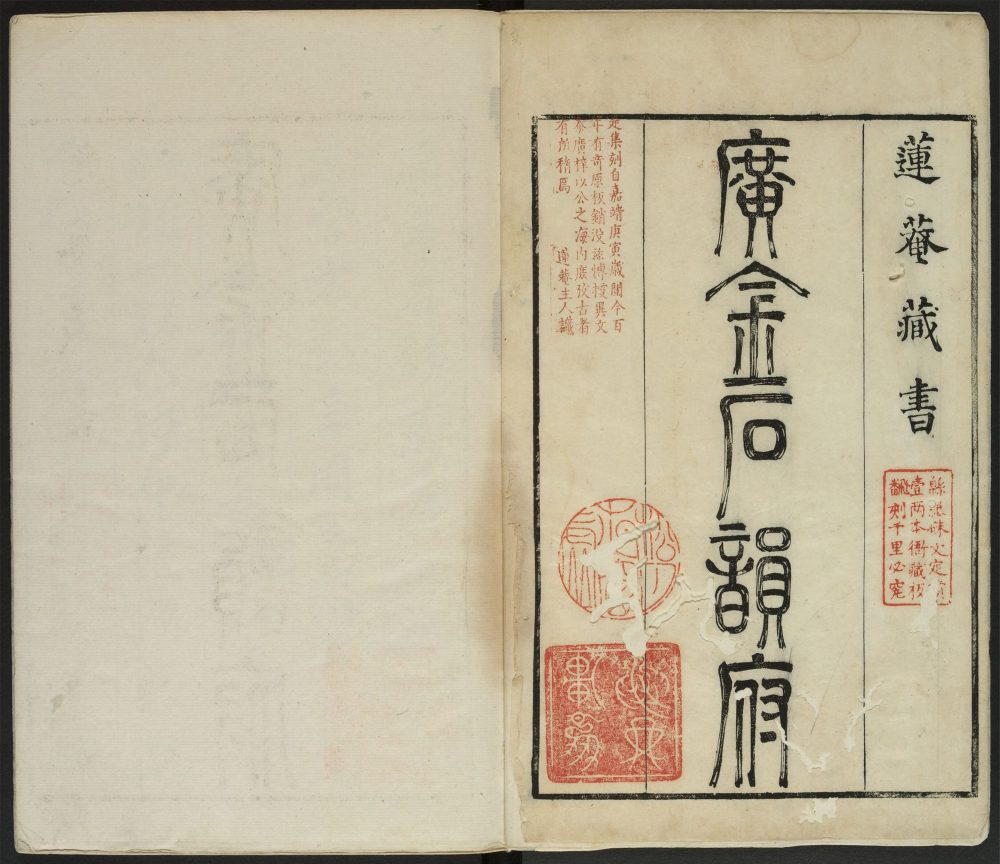 蓮菴藏書
綿紙硃文定價
壹两本衙藏板
翻刻千里必究
廣金石韻府
是集刻自嘉靖庚寅歲閱今百
年有奇原板銷没茲博搜異文
叅廣梓以公之海内庶攷古者
有所稽焉
蓮菴主人識